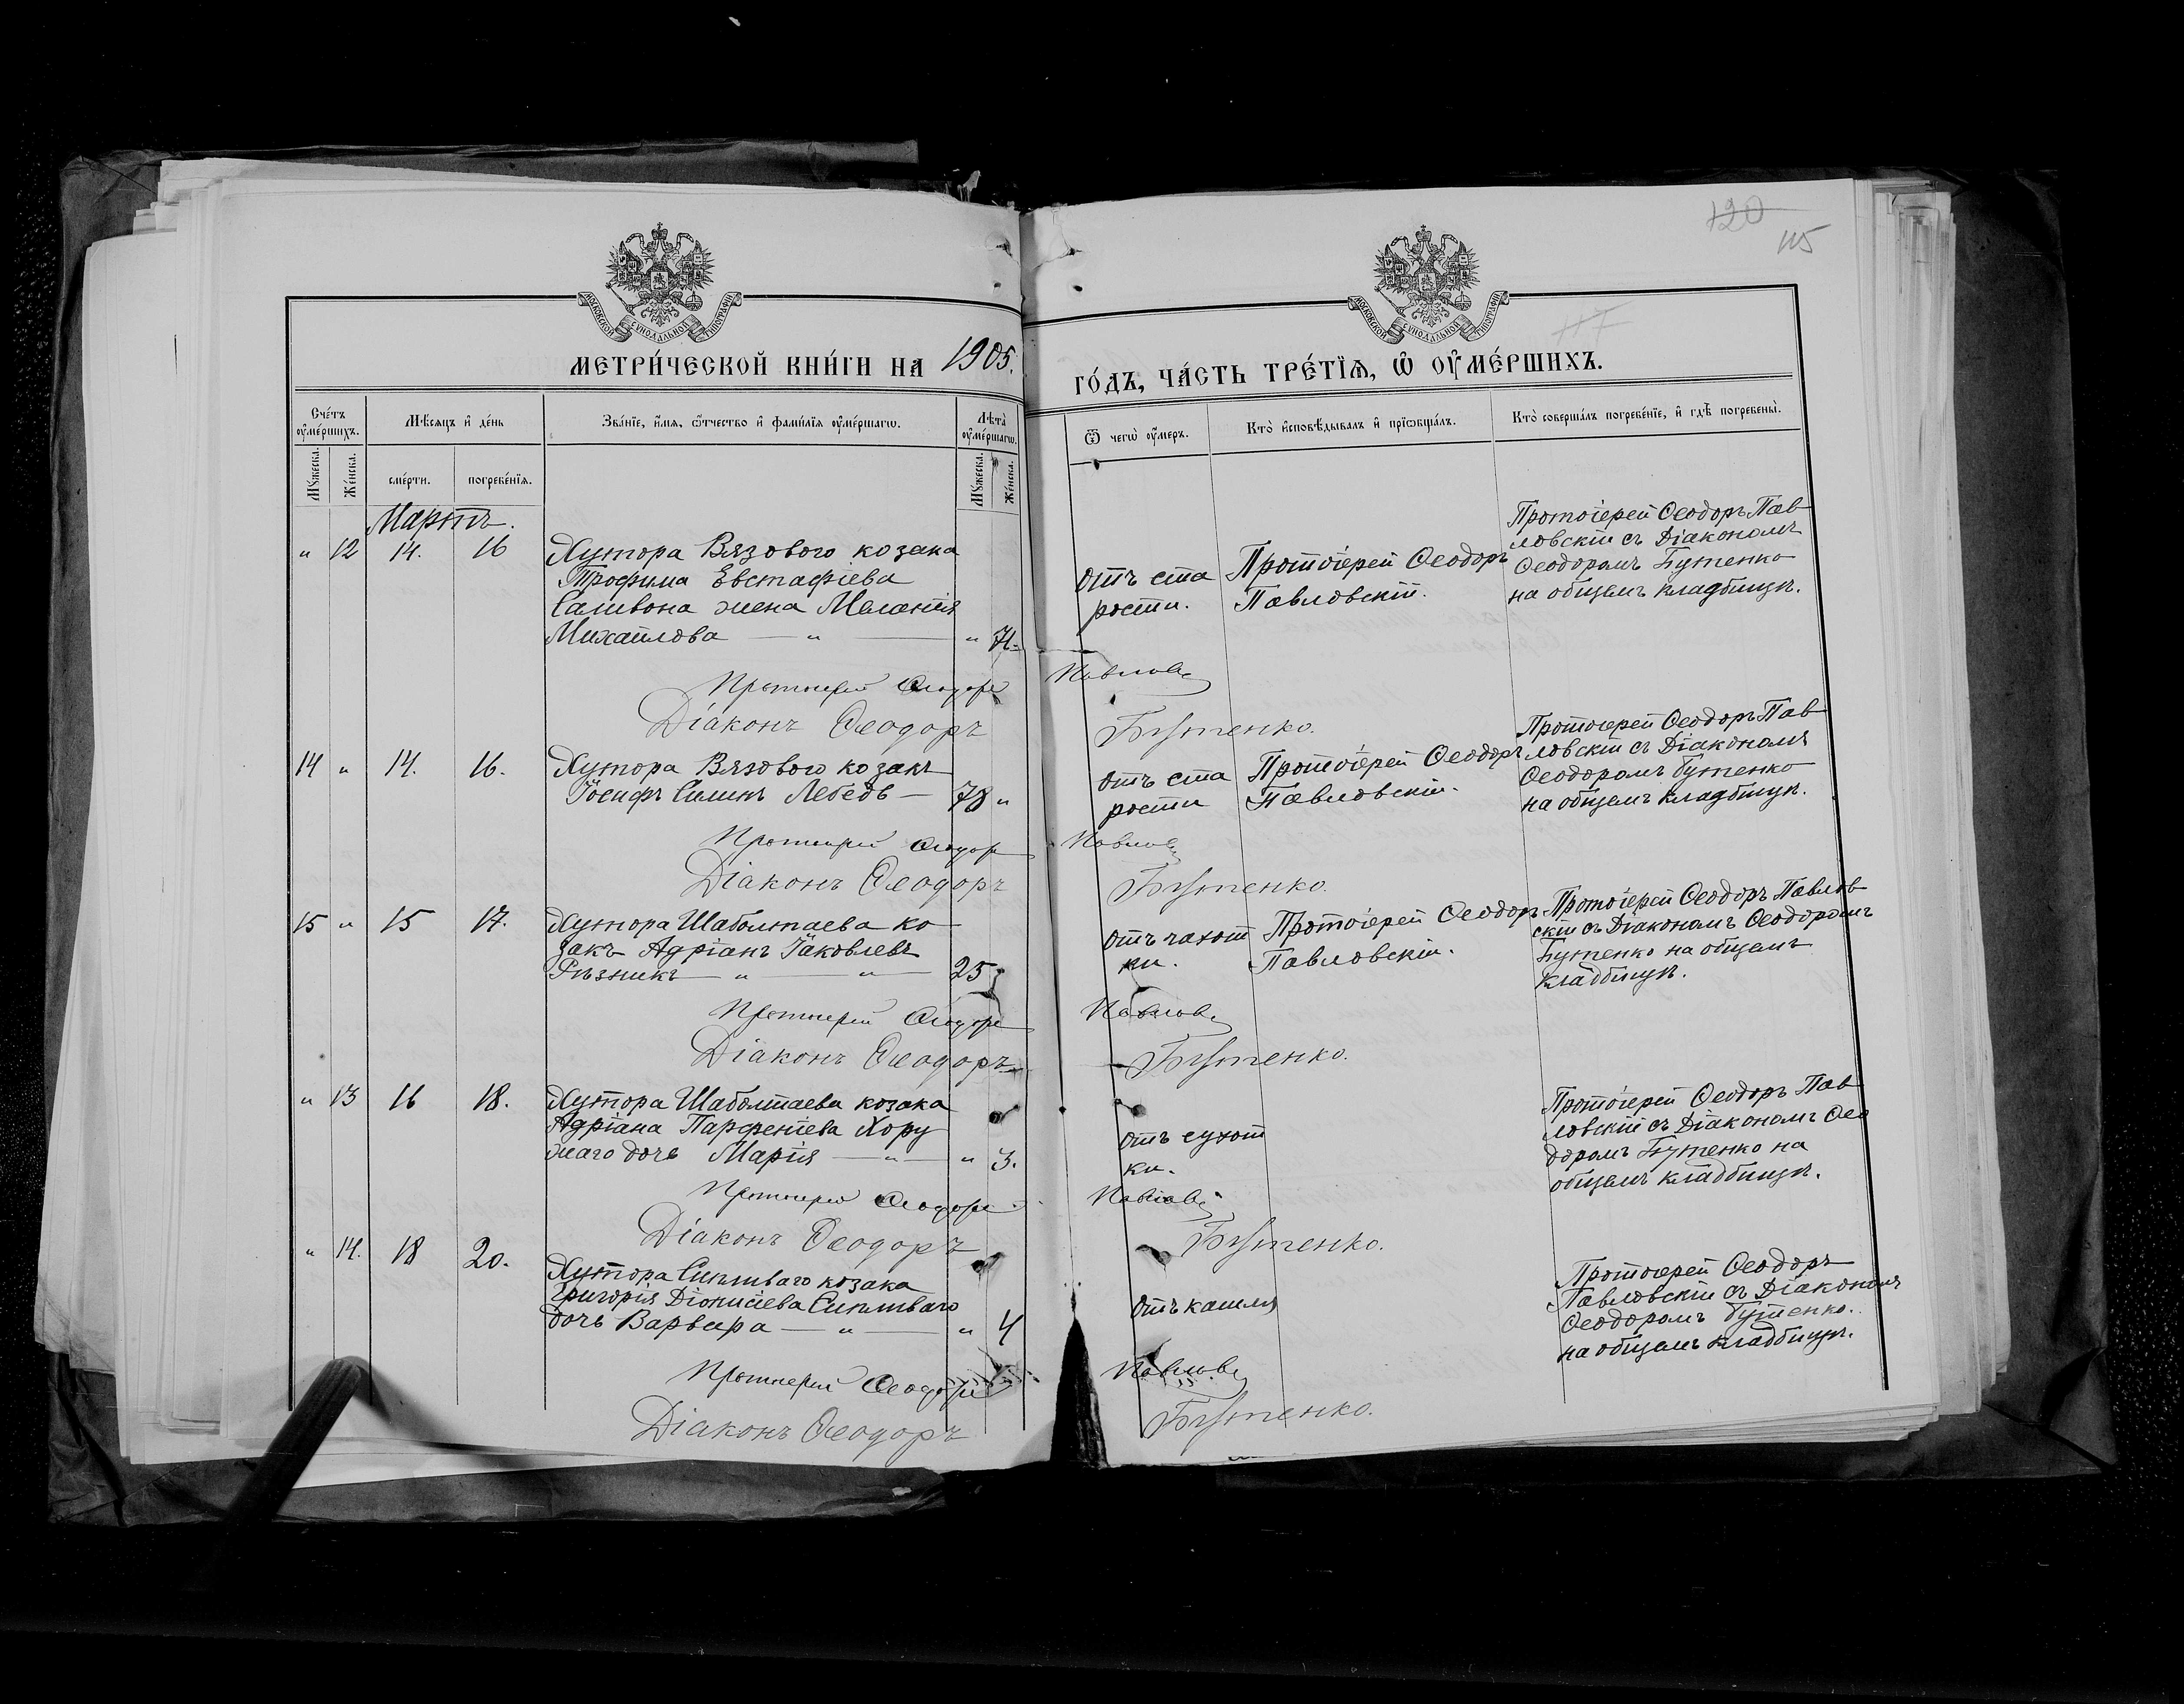 120
115
117
МОСКОВСКОЙ СѴНОДАЛЬНОЙ ТИПОГРАФІИ
МОСКОВСКОЙ СѴНОДАЛЬНОЙ ТИПОГРАФІИ
МЕТРИ́ЧЕСКОЙ КНИ́ГИ НА 1905.
ГО́ДЪ, ЧА́СТЬ ТРЕ́ТЇѦ, Ѽ ОУ҆МЕ́РШИХЪ.
Сче́тъ оу҆ме́ршихъ.
Мѣ́сѧцъ и҆ де́нь
Зва́нїе, и҆́мѧ, ѻ҆́тчество и҆ фами́лїѧ оу҆ме́ршагѡ.
Лѣ́та оу҆ме́ршагѡ.
Ѿ чегѡ̀ оу҆́меръ.
Кто̀ и҆сповѣ́дывалъ и҆ прїѡбща́лъ.
Кто̀ соверша́лъ погребе́нїе, и҆ гдѣ̀ погребены̀.
Мꙋ́жеска.
Же́нска.
сме́рти.
погребе́нїѧ.
Мꙋ́жеска.
Же́нска.
Мартъ.
" 12 14. 16 Хутора Вязового козака
Трофима Евстафіева
Саливона жена Меланія
Михайлова — " — " 71.
отъ ста
рости.
Протоіерей Ѳеодоръ
Павловскій.
Протоіерей Ѳеодоръ Пав
ловскій съ Діакономъ
Ѳеодоромъ Бутенко
на общемъ кладбищѣ.
Протоіерей Ѳеодоръ
Діаконъ Ѳеодоръ Бутенко.
14 " 14. 16. Хутора Вязового козакъ
Іосифъ Силинъ Лебедь — 78 "
отъ ста
рости
Протоіерей Ѳеодоръ
Павловскій.
Протоіерей Ѳеодоръ Пав
ловскій съ Діакономъ
Ѳеодоромъ Бутенко
на общемъ кладбищѣ.
Протоіерей Ѳеодоръ
Діаконъ Ѳеодоръ Бутенко.
15 " 15 17. Хутора Шаболтаева ко
закъ Адріанъ Іаковлевъ
Рѣзникъ — " — " — 25
отъ чахот
ки.
Протоіерей Ѳеодоръ
Павловскій.
Протоіерей Ѳеодоръ Павлов
скій съ Діакономъ Ѳеодоромъ
Бутенко на общемъ
кладбищѣ.
Протоіерей Ѳеодоръ
Діаконъ Ѳеодоръ Бутенко.
" 13 16 18. Хутора Шаболтаева козака
Адріана Парфеніева Хору
жаго дочь Марія — " — " 3.
отъ сухот
ки.
Протоіерей Ѳеодоръ Пав
ловскій съ Діакономъ Ѳео
доромъ Бутенко на
общемъ кладбищѣ.
Протоіерей Ѳеодоръ
Діаконъ Ѳеодоръ Бутенко.
" 14. 18 20. Хутора козака
Григорія Діонисіева
дочь Варвара — " — " 4
отъ кашля
Протоіерей Ѳеодоръ
Павловскій съ Діакономъ
Ѳеодоромъ Бутенко.
на общемъ кладбищѣ.
Протоіерей Ѳеодоръ
Діаконъ Ѳеодоръ Бутенко.